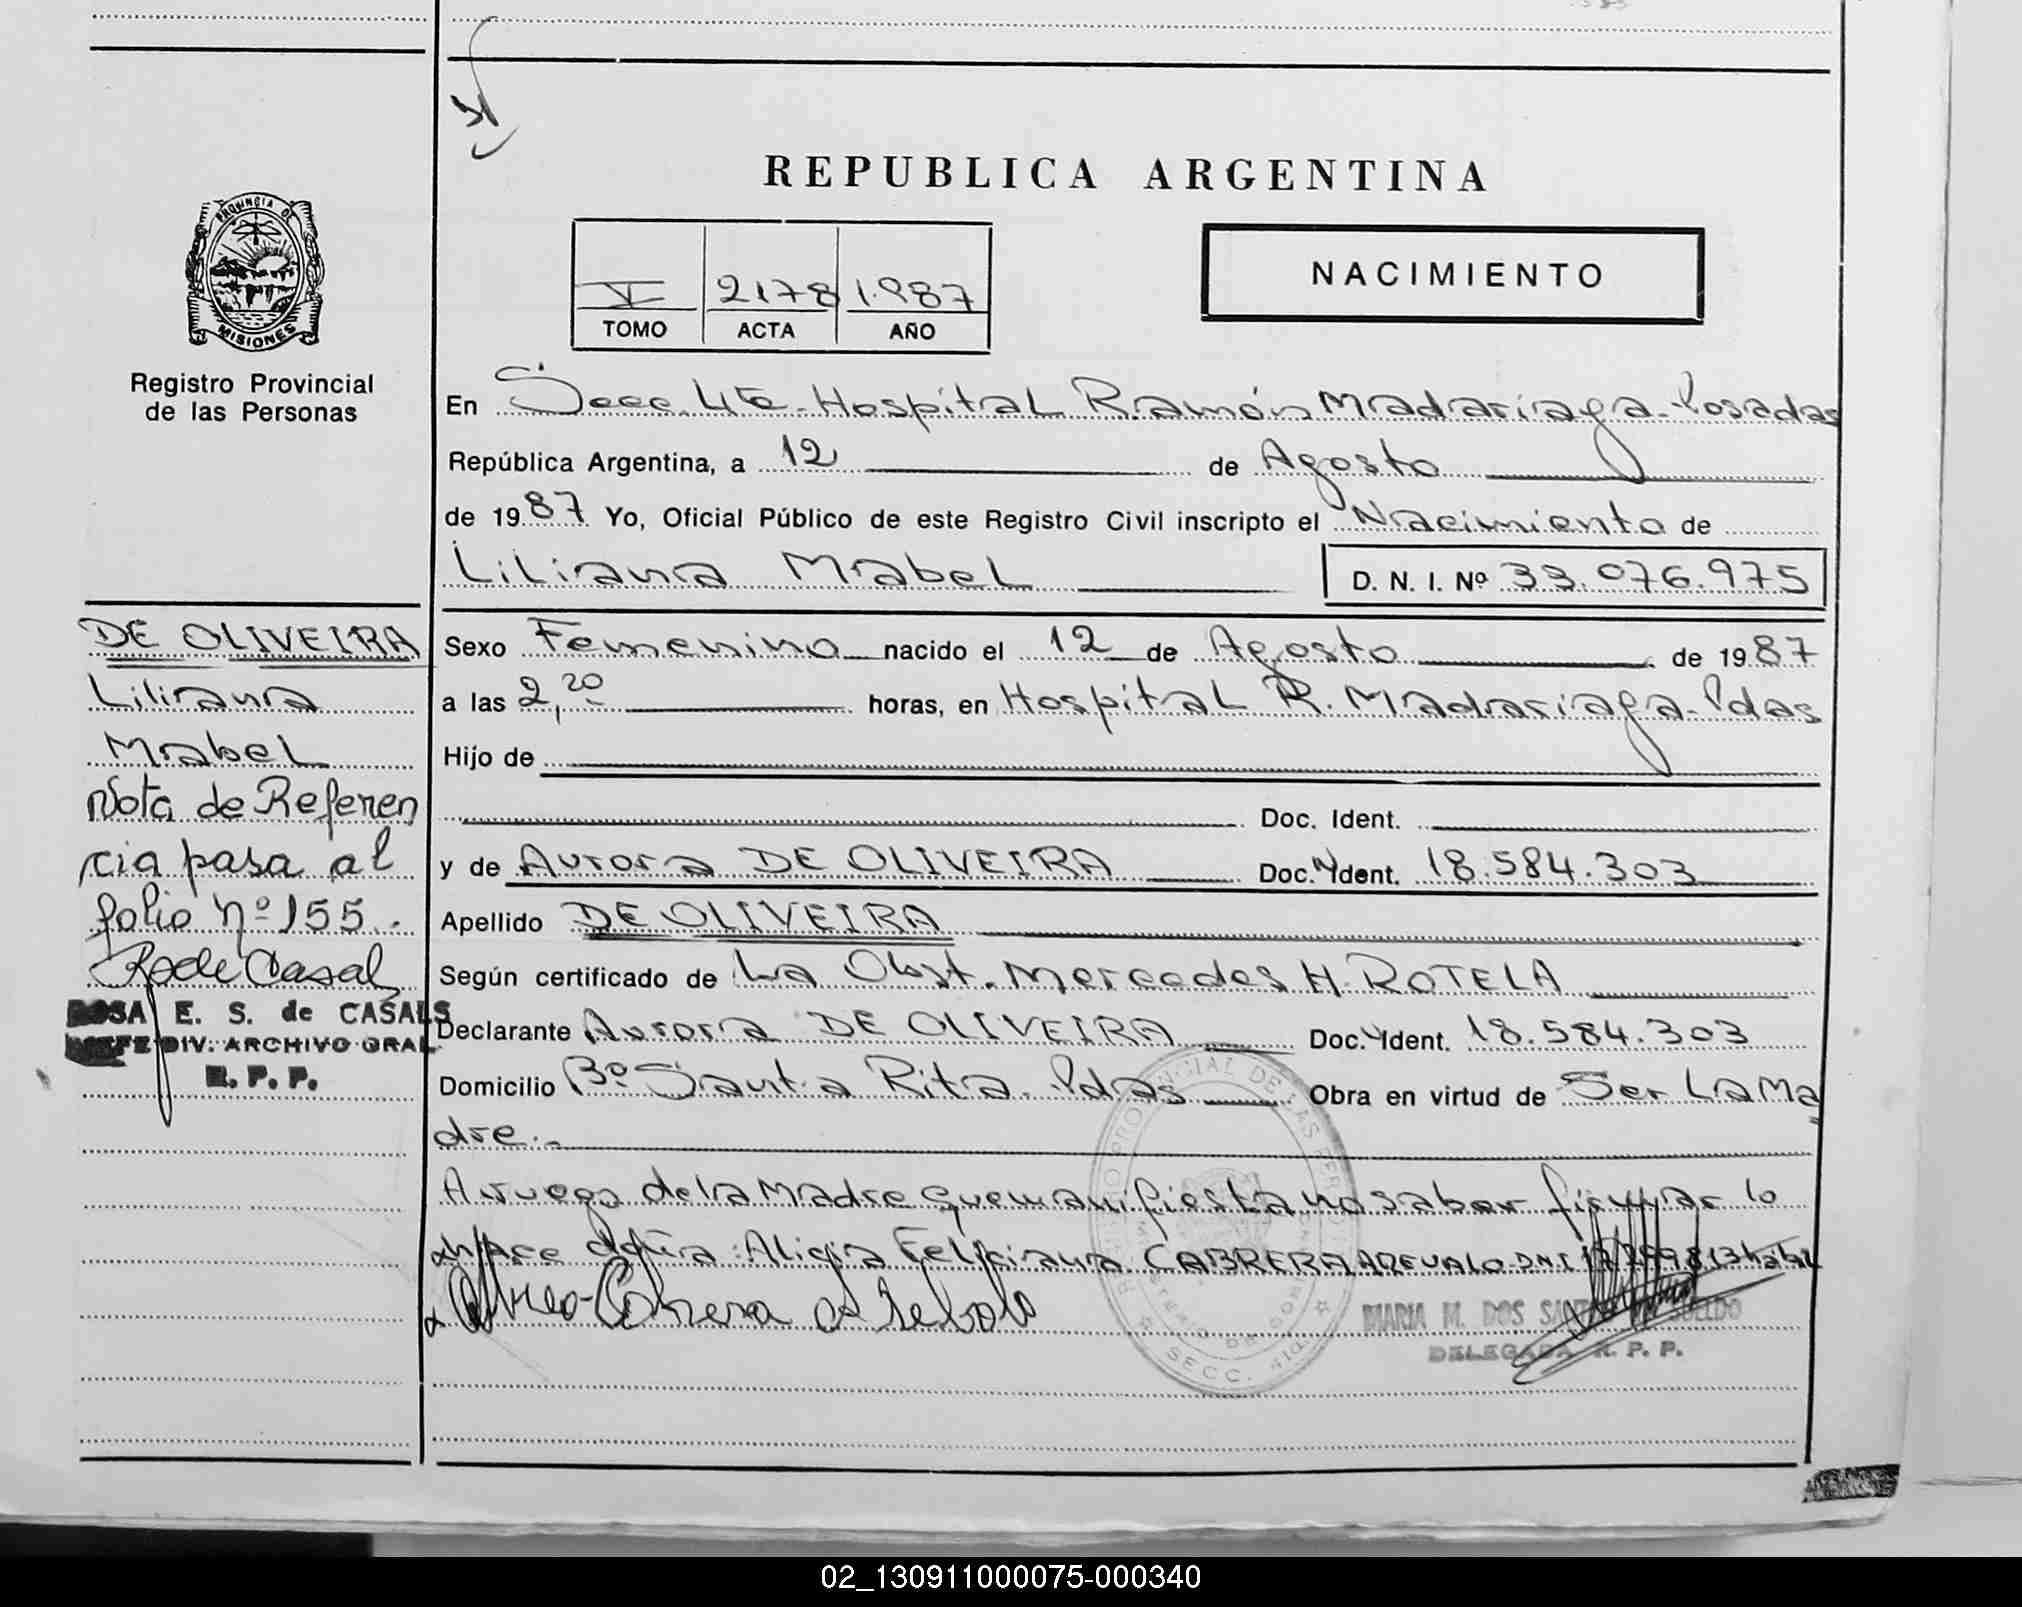 REPUBLICA ARGENTINA
PROVINCIA DE
MISIONES
Registro Provincial
de las Personas
V 2178 1.987
TOMO ACTA AÑO
NACIMIENTO
En Secc. 4ta - Hospital Ramón Madariaga - Posadas
República Argentina, a 12 de Agosto
de 1987 Yo, Oficial Público de este Registro Civil inscripto el Nacimiento de
Liliana Mabel D. N. I. Nº 33.076.975
DE OLIVEIRA
Liliana
Mabel
Nota de Referen
cia pasa al
folio Nº 155.-
ROSA E. S. de CASALS
JEFE DIV. ARCHIVO GRAL
R. P. P.
Sexo Femenino nacido el 12 de Agosto de 1987
a las 2,20 horas, en Hospital R. Madariaga - Pdas
Hijo de
Doc. Ident.
y de Aurora DE OLIVEIRA Doc. Ident. 18.584.303
Apellido DE OLIVEIRA
Según certificado de La Obst. Mercedes H. ROTELA
Declarante Aurora DE OLIVEIRA Doc. Ident. 18.584.303
Domicilio Bº Santa Rita - Pdas Obra en virtud de Ser La Ma
dre.-
A ruego de la Madre que manifiesta no saber firmar lo
hace Alicia Feliciana CABRERA AREVALO DNI
MARIA M. DOS SANTOS
DELEGADA R. P. P.
SECC. 4ta
02_130911000075-000340